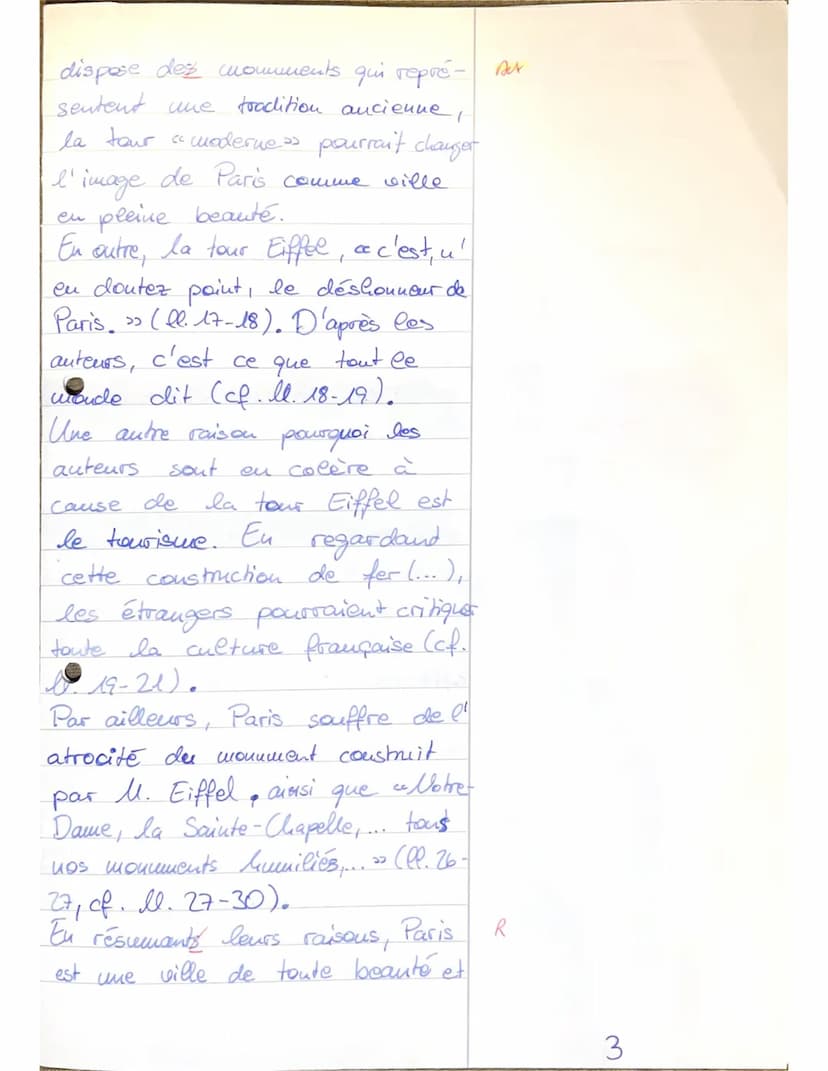 dispose des monuments qui repré- Art
sentent une tradition ancienne,
la tour «moderne» pourrait changer
l'image de Paris comme ville
en pleine beauté.
En outre, la tour Eiffel, «c'est, n'
en doutez point, le déshonneur de
Paris.» (ll. 17-18). D'après les
auteurs, c'est ce que tout le
monde dit (cf. ll. 18-19).
Une autre raison pourquoi les
auteurs sont en colère à
cause de la tour Eiffel est
le tourisme. En regardand
cette construction de fer (...),
les étrangers pourraient critiquer
toute la culture française (cf.
ll. 19-21).
Par ailleurs, Paris souffre de l'
atrocité du monument construit
par M. Eiffel, ainsi que «Notre-
Dame, la Sainte-Chapelle,... tous
nos monuments humiliés,...» (ll. 26-
27, cf. ll. 27-30).
En résumants leurs raisons, Paris R
est une ville de toute beauté et
3